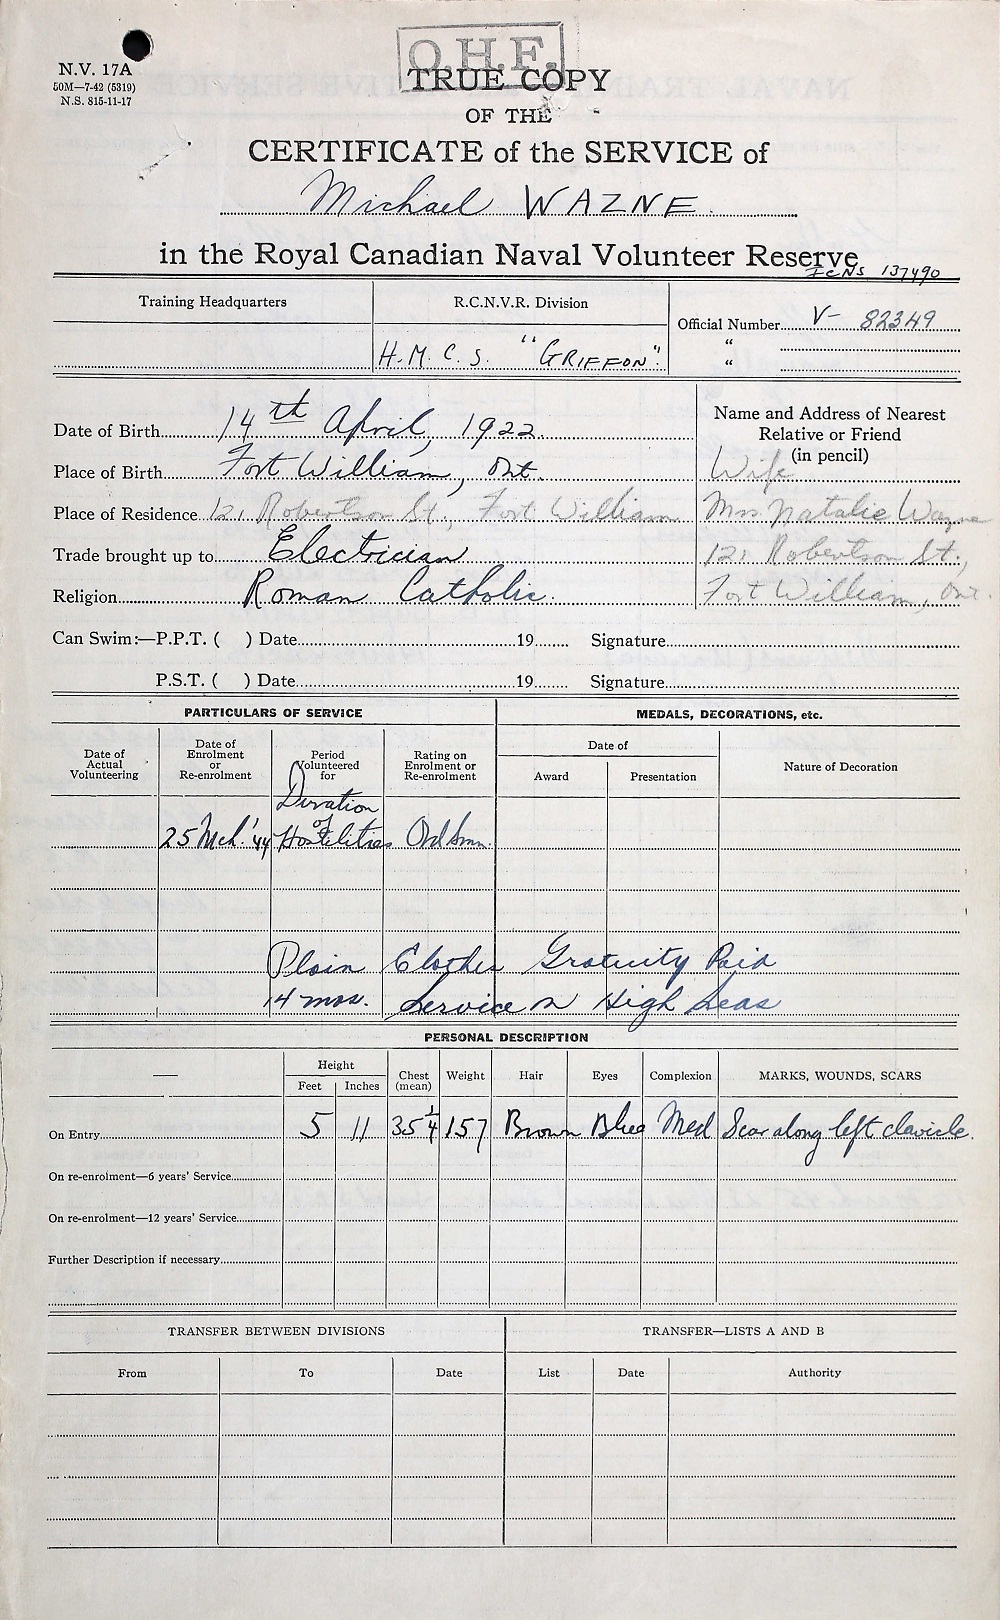 O.H.F.
N.V. 17A
50M—7-42 (5319)
N.S. 815-11-17
TRUE COPY
OF THE
CERTIFICATE of the SERVICE of
Michael WAZNE
in the Royal Canadian Naval Volunteer Reserve
ICNS 137490
Training Headquarters
R.C.N.V.R. Division
H.M.C.S. "GRIFFON".
Official Number V- 82349
"
"
Date of Birth 14th April, 1922.
Place of Birth Fort William, Ont.
Place of Residence 121 Robertson St., Fort William
Trade brought up to Electrician
Religion Roman Catholic.
Name and Address of Nearest
Relative or Friend
(in pencil)
Wife
Mrs. Natalie Wazne
121 Robertson St.,
Fort William, Ont.
Can Swim:—P.P.T. ( ) Date 19 Signature
P.S.T. ( ) Date 19 Signature
PARTICULARS OF SERVICE
MEDALS, DECORATIONS, etc.
Date of
Actual
Volunteering
Date of
Enrolment
or
Re-enrolment
Period
Volunteered
for
Rating on
Enrolment or
Re-enrolment
Date of
Award
Presentation
Nature of Decoration
Duration
of
25 Mch. '44 Hostilities Ord Smn.
Plain Clothes Gratuity Paid
14 mos. Service on High Seas
PERSONAL DESCRIPTION
—
Height
Feet
Inches
Chest
(mean)
Weight
Hair
Eyes
Complexion
MARKS, WOUNDS, SCARS
On Entry 5 11 35 1/4 157 Brown Blue Med Scar along left clavicle.
On re-enrolment—6 years' Service
On re-enrolment—12 years' Service
Further Description if necessary
TRANSFER BETWEEN DIVISIONS
TRANSFER—LISTS A AND B
From
To
Date
List
Date
Authority